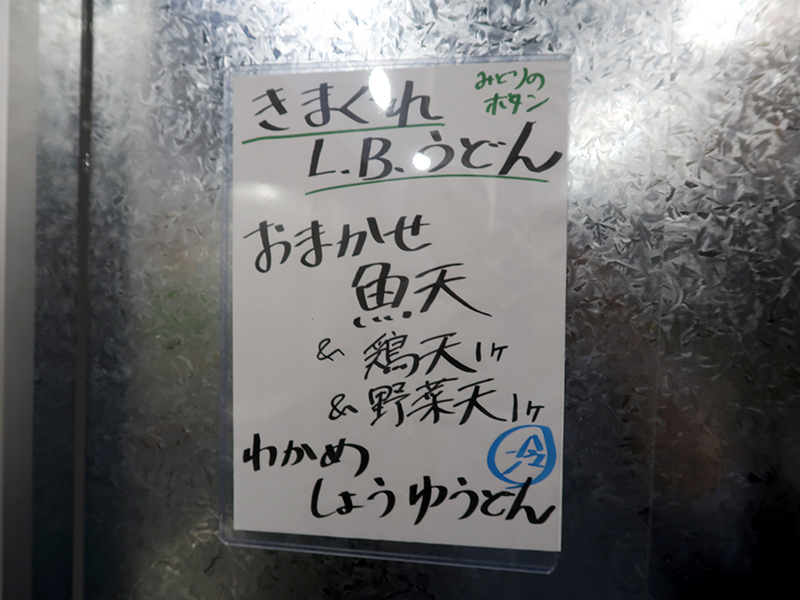 みどりの
ボタン
きまぐれ
L.B.うどん
おまかせ
魚天
& 鶏天1ヶ
& 野菜天1ヶ
わかめ
冷
しょうゆうどん